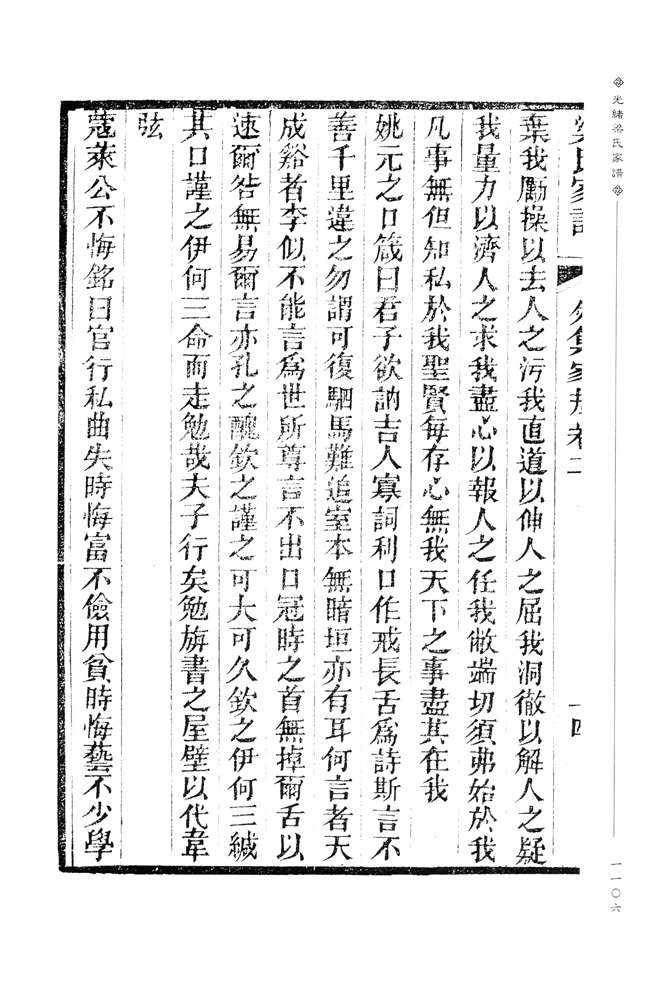 光緒梁氏家譜
一一〇六
梁氏家譜 外集家規卷二 一四
棄我勵操以去人之污我直道以伸人之屈我洞徹以解人之疑
我量力以濟人之求我盡心以報人之任我敝端切須弗始於我
凡事無但知私於我聖賢每存心無我天下之事盡其在我
姚元之口箴曰君子欲訥吉人寡詞利口作戒長舌爲詩斯言不
善千里違之勿謂可復駟馬難追室本無暗垣亦有耳何言者天
成谿者李似不能言爲世所尊言不出口冠時之首無掉爾舌以
速爾咎無易爾言亦孔之醜欽之謹之可大可久欽之伊何三緘
其口謹之伊何三命而走勉哉夫子行矣勉旃書之屋壁以代韋
弦
蔻萊公不悔銘曰官行私曲失時悔富不儉用貧時悔藝不少學